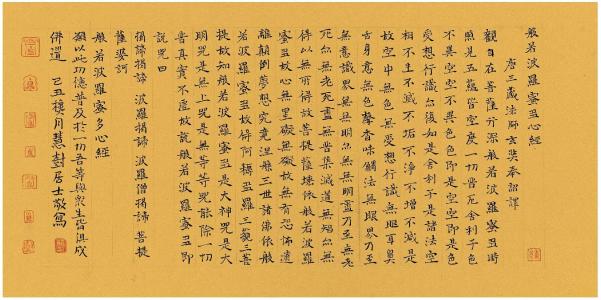 般若波羅蜜多心經
唐三藏法師玄奘奉詔譯
觀自在菩薩行深般若波羅蜜多時
照見五蘊皆空度一切苦厄舍利子色
不異空空不異色色即是空空即是色
受想行識亦復如是舍利子是諸法空
相不生不滅不垢不淨不增不減是
故空中無色無受想行識無眼耳鼻
舌身意無色聲香味觸法無眼界乃至
無意識界無無明亦無無明盡乃至無老
死亦無老死盡無苦集滅道無智亦無
得以無所得故菩提薩埵依般若波羅
蜜多故心無罣礙無罣礙故無有恐怖遠
離顛倒夢想究竟涅槃三世諸佛依般
若波羅蜜多故得阿耨多羅三藐三菩
提故知般若波羅蜜多是大神咒是大
明咒是無上咒是無等等咒能除一切
苦真實不虛故說般若波羅蜜多即
說咒曰
揭諦揭諦 波羅揭諦 波羅僧揭諦 菩提
薩婆訶
般若波羅蜜多心經
願以此功德普及於一切吾等與眾生皆俱成
佛道 己丑月慧樹居士敬寫